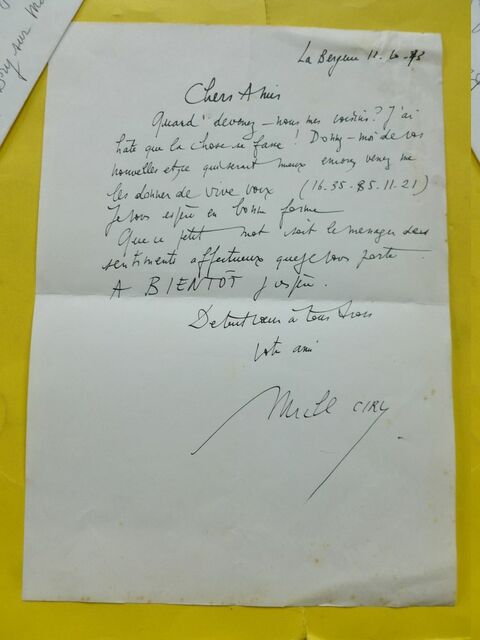 La Bergerie
Chers Amis
Quand devenez-vous mes voisins? J'ai
hâte que la chose se fasse! Donnez-moi de vos
nouvelles et ce qui serait mieux encore venez me
les donner de vive voix (16.35.85.11.21)
Je vous espère en bonne forme
Que ce petit mot soit le messager des
sentiments affectueux que je vous porte
A BIENTÔT j'espère.
De tout cœur à tous trois
votre ami
CIRY
sur